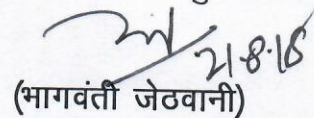 21-8-18
(भागवंती जेठवानी)